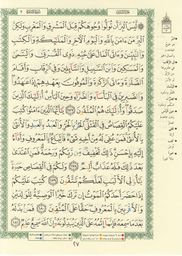 لَّيْسَ ٱلْبِرَّ أَن تُوَلُّوا۟ وُجُوهَكُمْ قِبَلَ ٱلْمَشْرِقِ وَٱلْمَغْرِبِ وَلَٰكِنَّ
ٱلْبِرَّ مَنْ ءَامَنَ بِٱللَّهِ وَٱلْيَوْمِ ٱلْءَاخِرِ وَٱلْمَلَٰٓئِكَةِ وَٱلْكِتَٰبِ
وَٱلنَّبِيِّۦنَ وَءَاتَى ٱلْمَالَ عَلَىٰ حُبِّهِۦ ذَوِى ٱلْقُرْبَىٰ وَٱلْيَتَٰمَىٰ
وَٱلْمَسَٰكِينَ وَٱبْنَ ٱلسَّبِيلِ وَٱلسَّآئِلِينَ وَفِى ٱلرِّقَابِ وَأَقَامَ
ٱلصَّلَوٰةَ وَءَاتَى ٱلزَّكَوٰةَ وَٱلْمُوفُونَ بِعَهْدِهِمْ إِذَا عَٰهَدُوا۟
وَٱلصَّٰبِرِينَ فِى ٱلْبَأْسَآءِ وَٱلضَّرَّآءِ وَحِينَ ٱلْبَأْسِ أُو۟لَٰٓئِكَ ٱلَّذِينَ
صَدَقُوا۟ وَأُو۟لَٰٓئِكَ هُمُ ٱلْمُتَّقُونَ ١٧٧ يَٰٓأَيُّهَا ٱلَّذِينَ ءَامَنُوا۟ كُتِبَ
عَلَيْكُمُ ٱلْقِصَاصُ فِى ٱلْقَتْلَى ٱلْحُرُّ بِٱلْحُرِّ وَٱلْعَبْدُ بِٱلْعَبْدِ وَٱلْأُنثَىٰ
بِٱلْأُنثَىٰ فَمَنْ عُفِىَ لَهُۥ مِنْ أَخِيهِ شَىْءٌ فَٱتِّبَاعٌۢ بِٱلْمَعْرُوفِ وَأَدَآءٌ
إِلَيْهِ بِإِحْسَٰنٍ ذَٰلِكَ تَخْفِيفٌ مِّن رَّبِّكُمْ وَرَحْمَةٌ فَمَنِ ٱعْتَدَىٰ
بَعْدَ ذَٰلِكَ فَلَهُۥ عَذَابٌ أَلِيمٌ ١٧٨ وَلَكُمْ فِى ٱلْقِصَاصِ حَيَوٰةٌ
يَٰٓأُو۟لِى ٱلْأَلْبَٰبِ لَعَلَّكُمْ تَتَّقُونَ ١٧٩ كُتِبَ عَلَيْكُمْ
إِذَا حَضَرَ أَحَدَكُمُ ٱلْمَوْتُ إِن تَرَكَ خَيْرًا ٱلْوَصِيَّةُ لِلْوَٰلِدَيْنِ
وَٱلْأَقْرَبِينَ بِٱلْمَعْرُوفِ حَقًّا عَلَى ٱلْمُتَّقِينَ ١٨٠ فَمَنۢ بَدَّلَهُۥ
بَعْدَ مَا سَمِعَهُۥ فَإِنَّمَآ إِثْمُهُۥ عَلَى ٱلَّذِينَ يُبَدِّلُونَهُۥٓ إِنَّ ٱللَّهَ سَمِيعٌ عَلِيمٌ ١٨١
٢٧